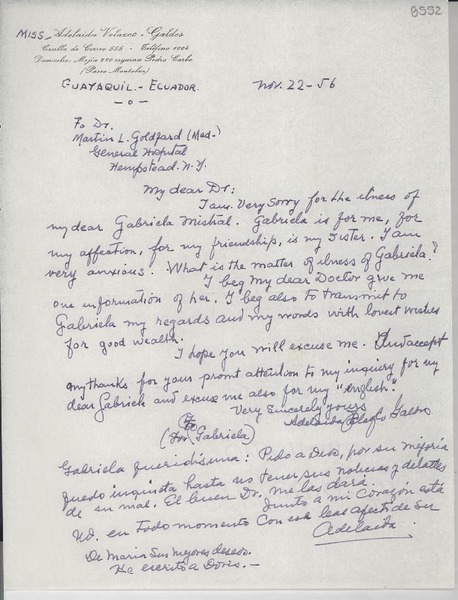 8552
MISS- Adelaida Velazco - Galdos
Casilla de Correo 555 - Teléfono 1004
Domicilio: Mejía 220 esquina Pedro Carbo
(Paseo Montalvo)
GUAYAQUIL.- ECUADOR.
Nov. 22-56
-o-
To Dr.
Martin L. Goldfard (Med.)
General Hospital
Hempstead. N.Y.
My dear Dr:
I am very sorry for the ilness of
my dear Gabriela Mistral. Gabriela is for me, for
my affection, for my friendship, is my sister. I am
very anxious. What is the matter of ilness of Gabriela?
I beg my dear Doctor give me
one information of her. I beg also to transmit to
Gabriela my regards and my words with lovest wishes
for good wealth.
I hope you will excuse me. And accept
my thanks for your promt attention to my inquiry for my
dear Gabriela and excuse me also for my "english".
Very Sincerely yours
Adelaida Velazco Galdos
(For Gabriela)
Gabriela queridísima: Pido a Dios, por su mejoría
quedo inquieta hasta no tener sus noticias y detalles
de su mal. El buen Dr. me las dará.
Junto a mi Corazón está
Ud. en todo momento con el afecto de su
Adelaida
De Maria sus mejores deseos.
He escrito a Doris.-